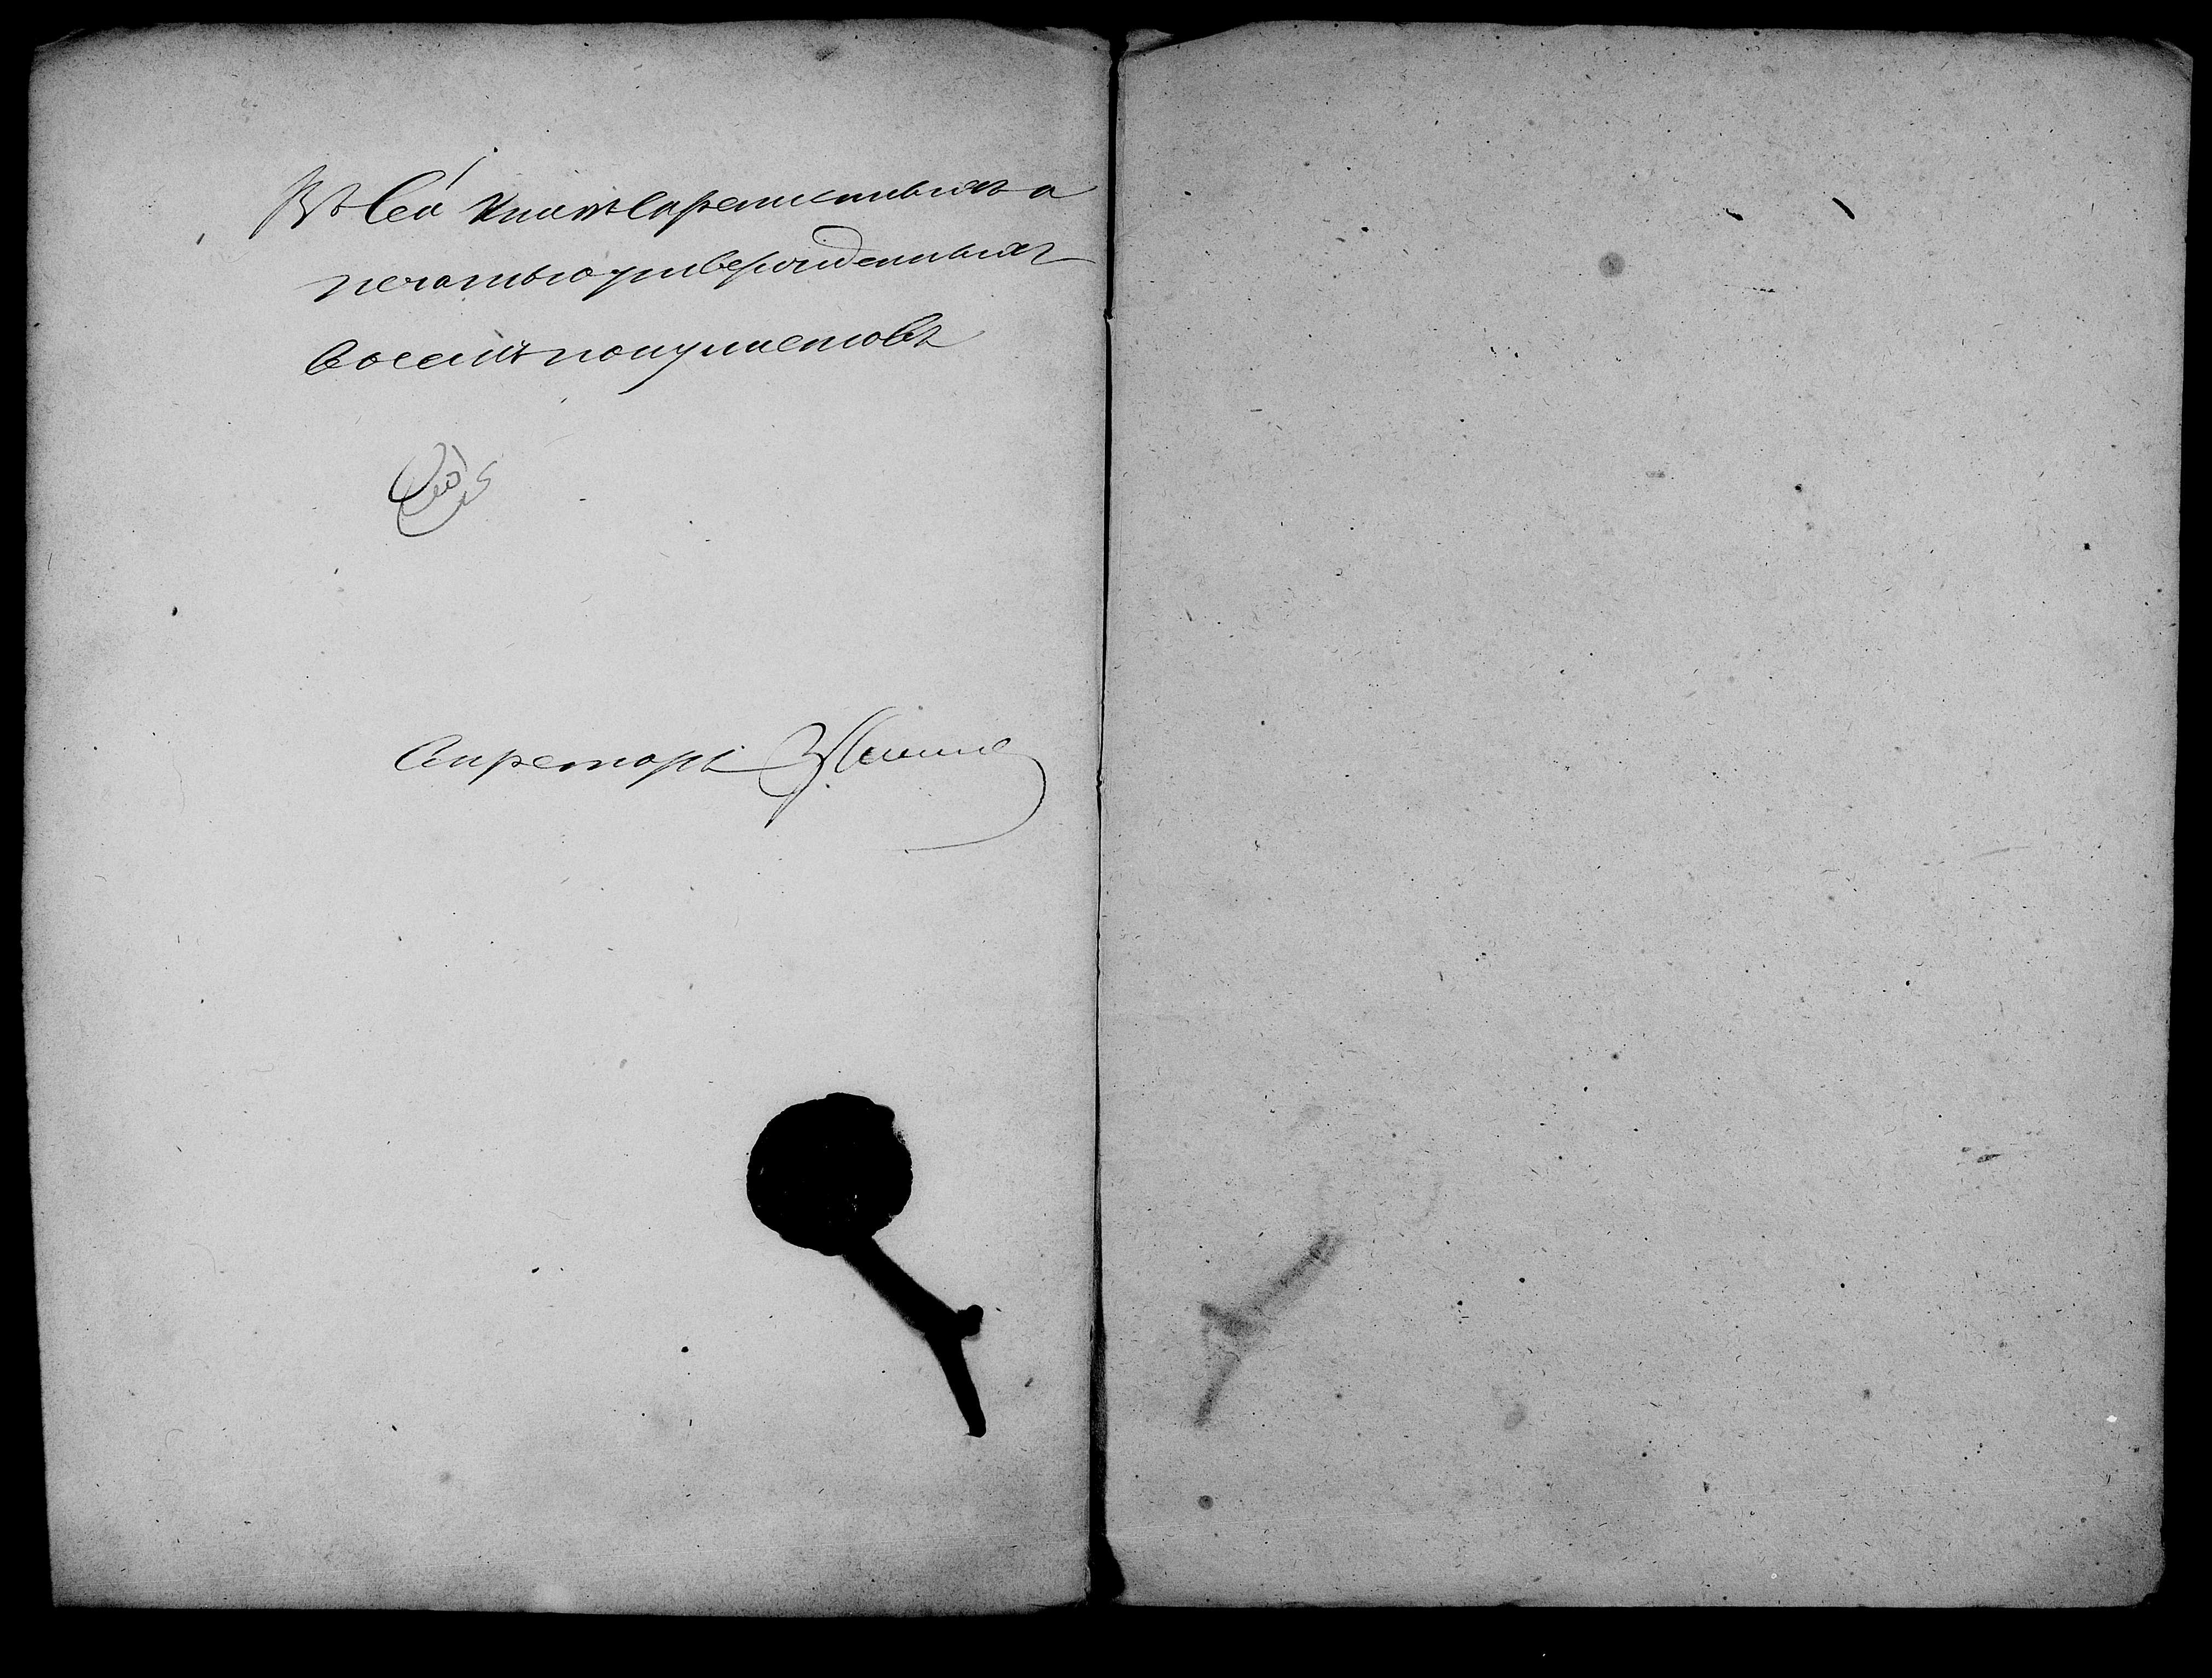 Въ сей Книгѣ скрепленныхъ а
печатью утвержденныхъ
восемь полулистовъ
Секретарь